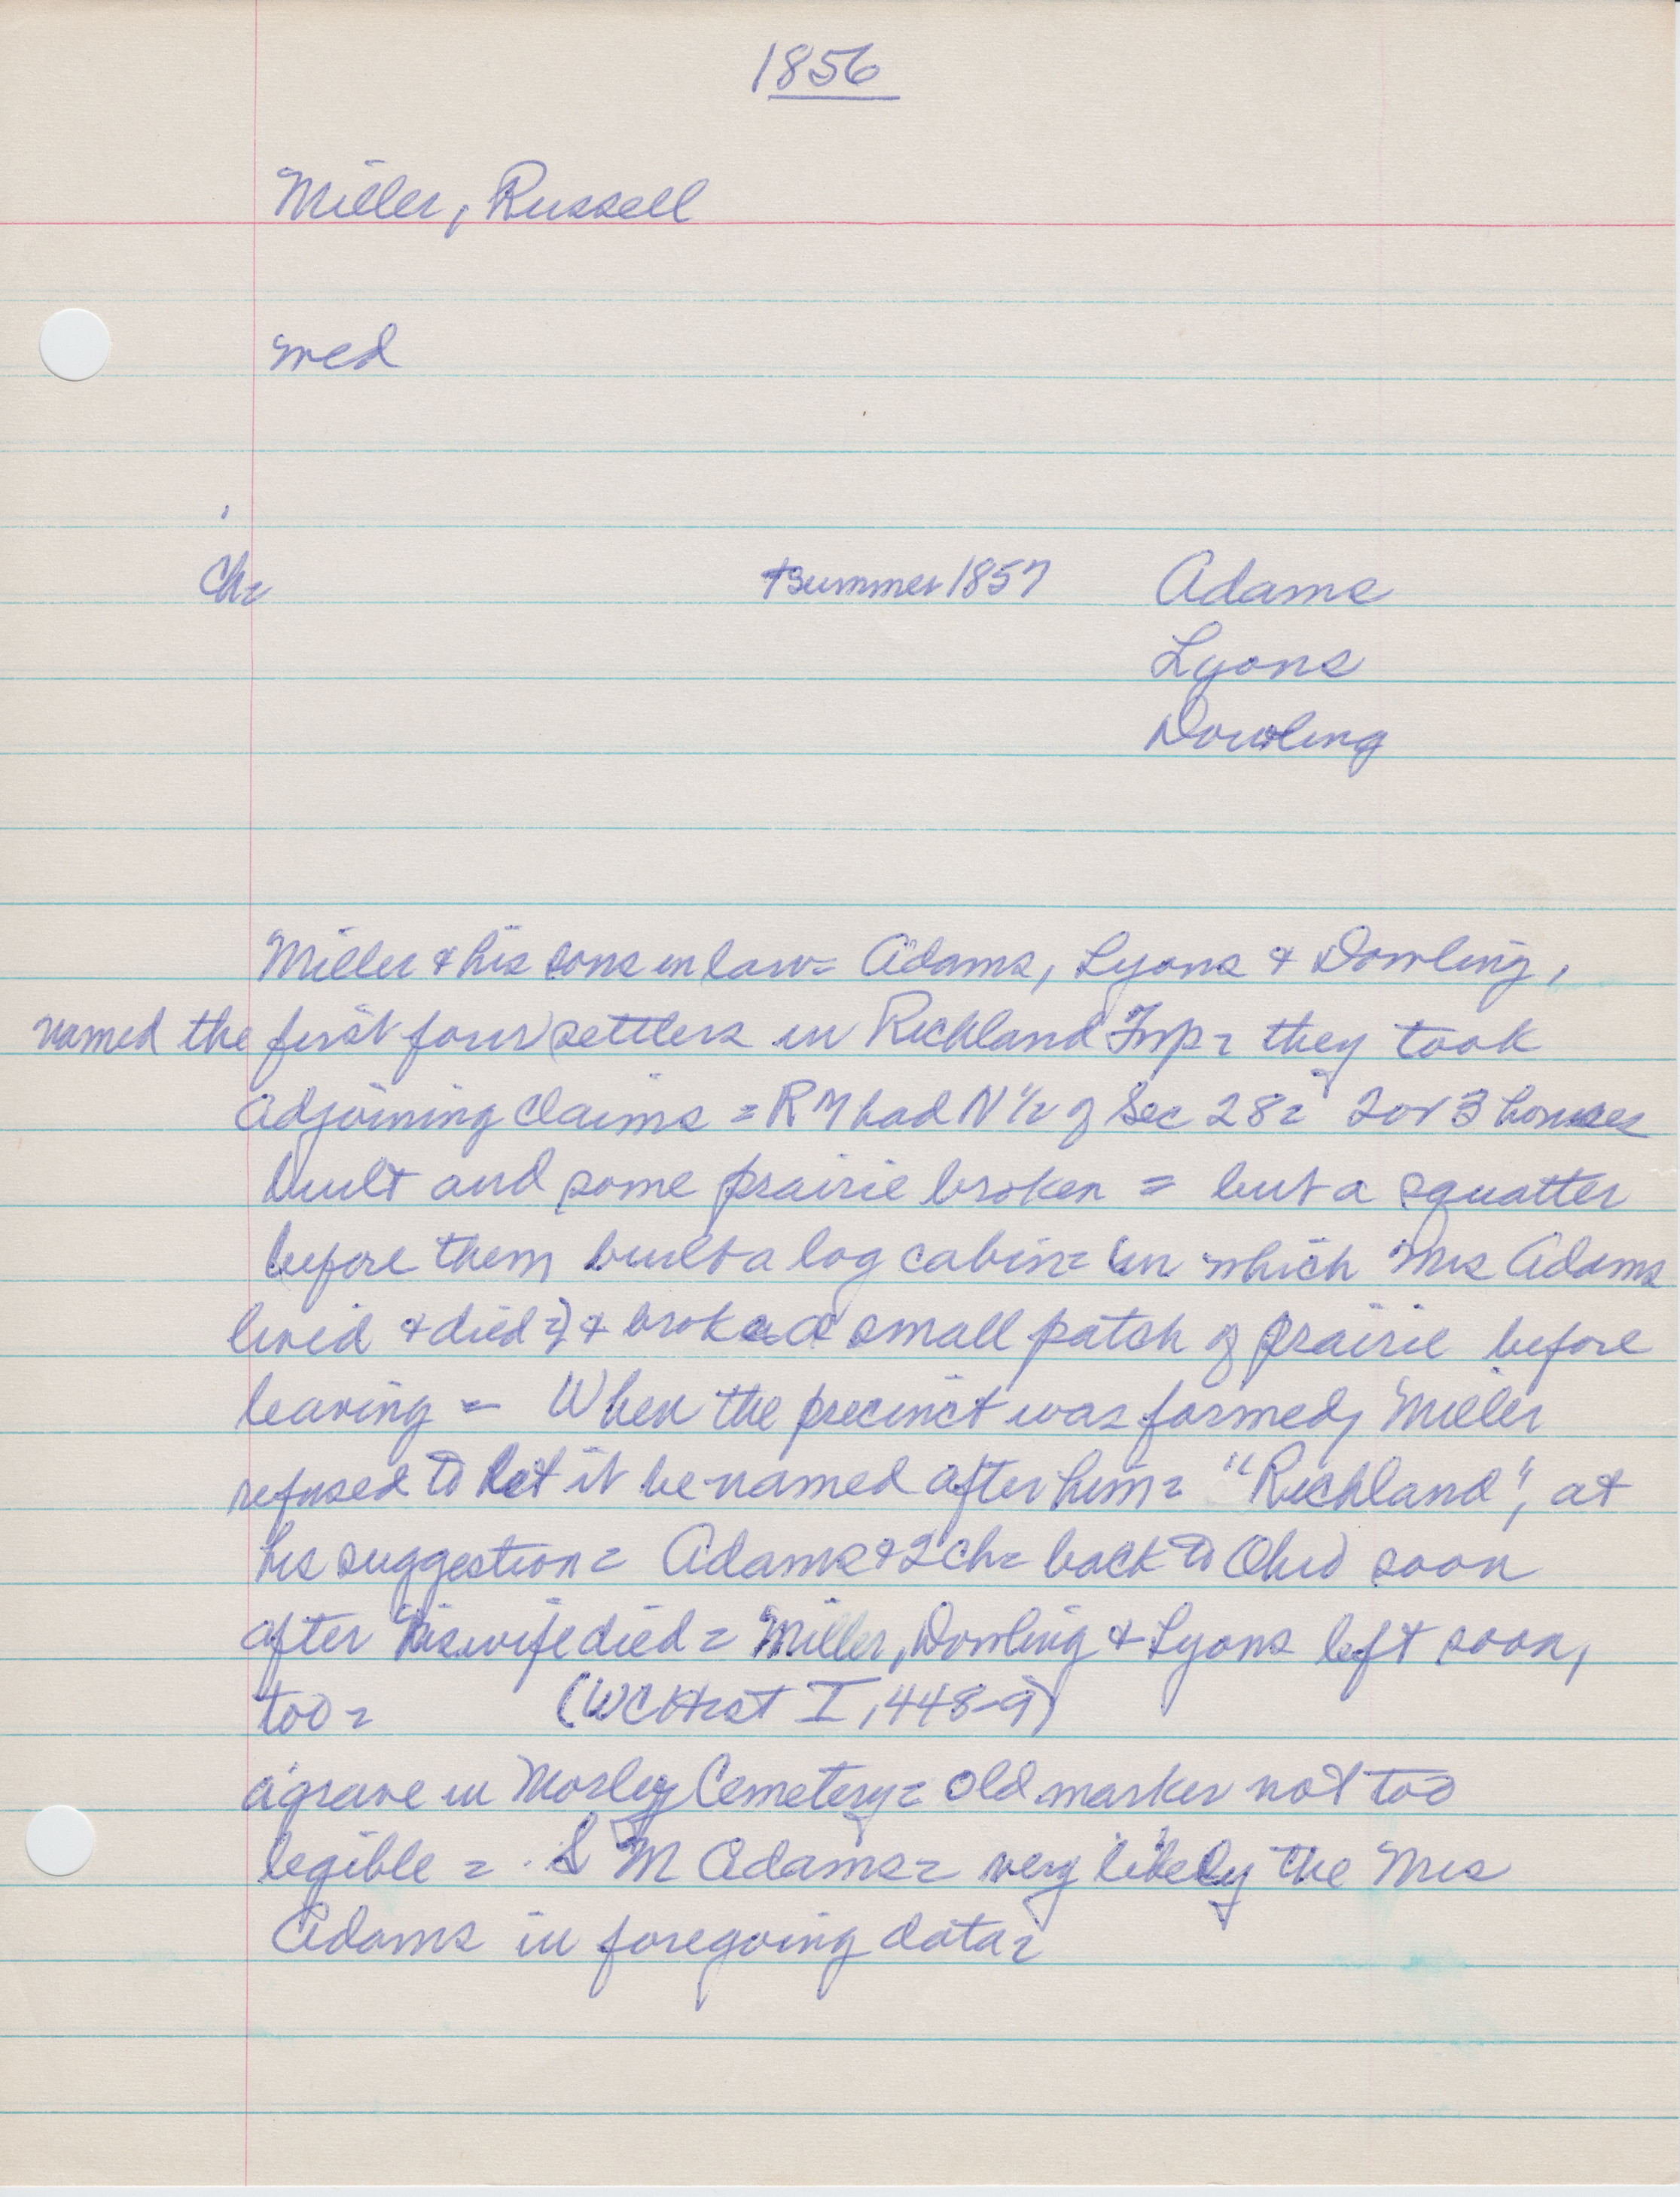 1856
Miller, Russell
med
Ch= +Summer 1857 Adams
Lyons
Dowling
Miller & his sons in law= Adams, Lyons & Dowling,
named the first four settlers in Richland Twp= they took
adjoining claims = R M had N 1/2 of Sec 28= 2 or 3 houses
built and some prairie broken = but a squatter
before them built a log cabin= (in which Mrs Adams
lived & died=) & broke a small patch of prairie before
leaving = When the precinct was formed, Miller
refused to let it be named after him= "Richland", at
his suggestion= Adams & 2 ch= back to Ohio soon
after his wife died = Miller, Dowling & Lyons left soon,
too= (WC Hist I, 448-9)
a grave in Mosley Cemetery= old marker not too
legible = S M Adams= very likely the Mrs
Adams in foregoing data=